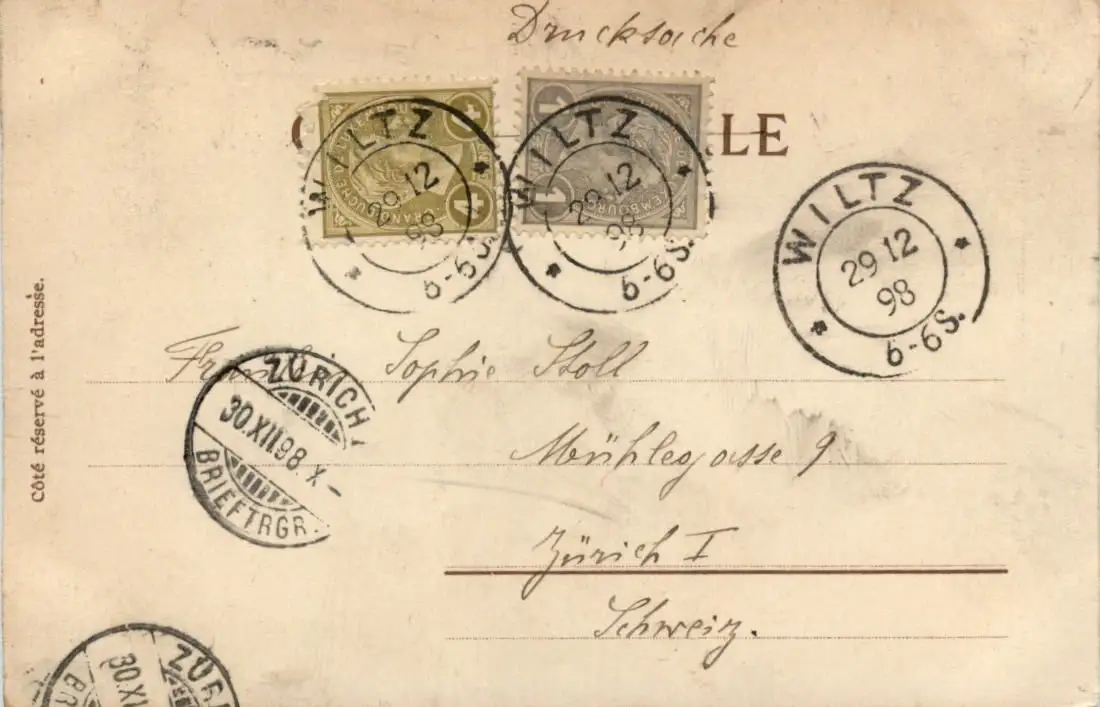 Drucksache
LE
WILTZ
29 12
98
6-6S.
WILTZ
29 12
98
6-6S.
WILTZ
29 12
98
6-6S.
4
4
GRAND DUCHÉ DE LUXEMBOURG
1
1
LUXEMBOURG
Côté réservé à l'adresse.
Sophie Stoll
Mühlegasse 9.
Zürich I
Schweiz.
ZÜRICH
30.XII.98.X-
BRIEFTRGR.
ZÜR
30.XI
BR